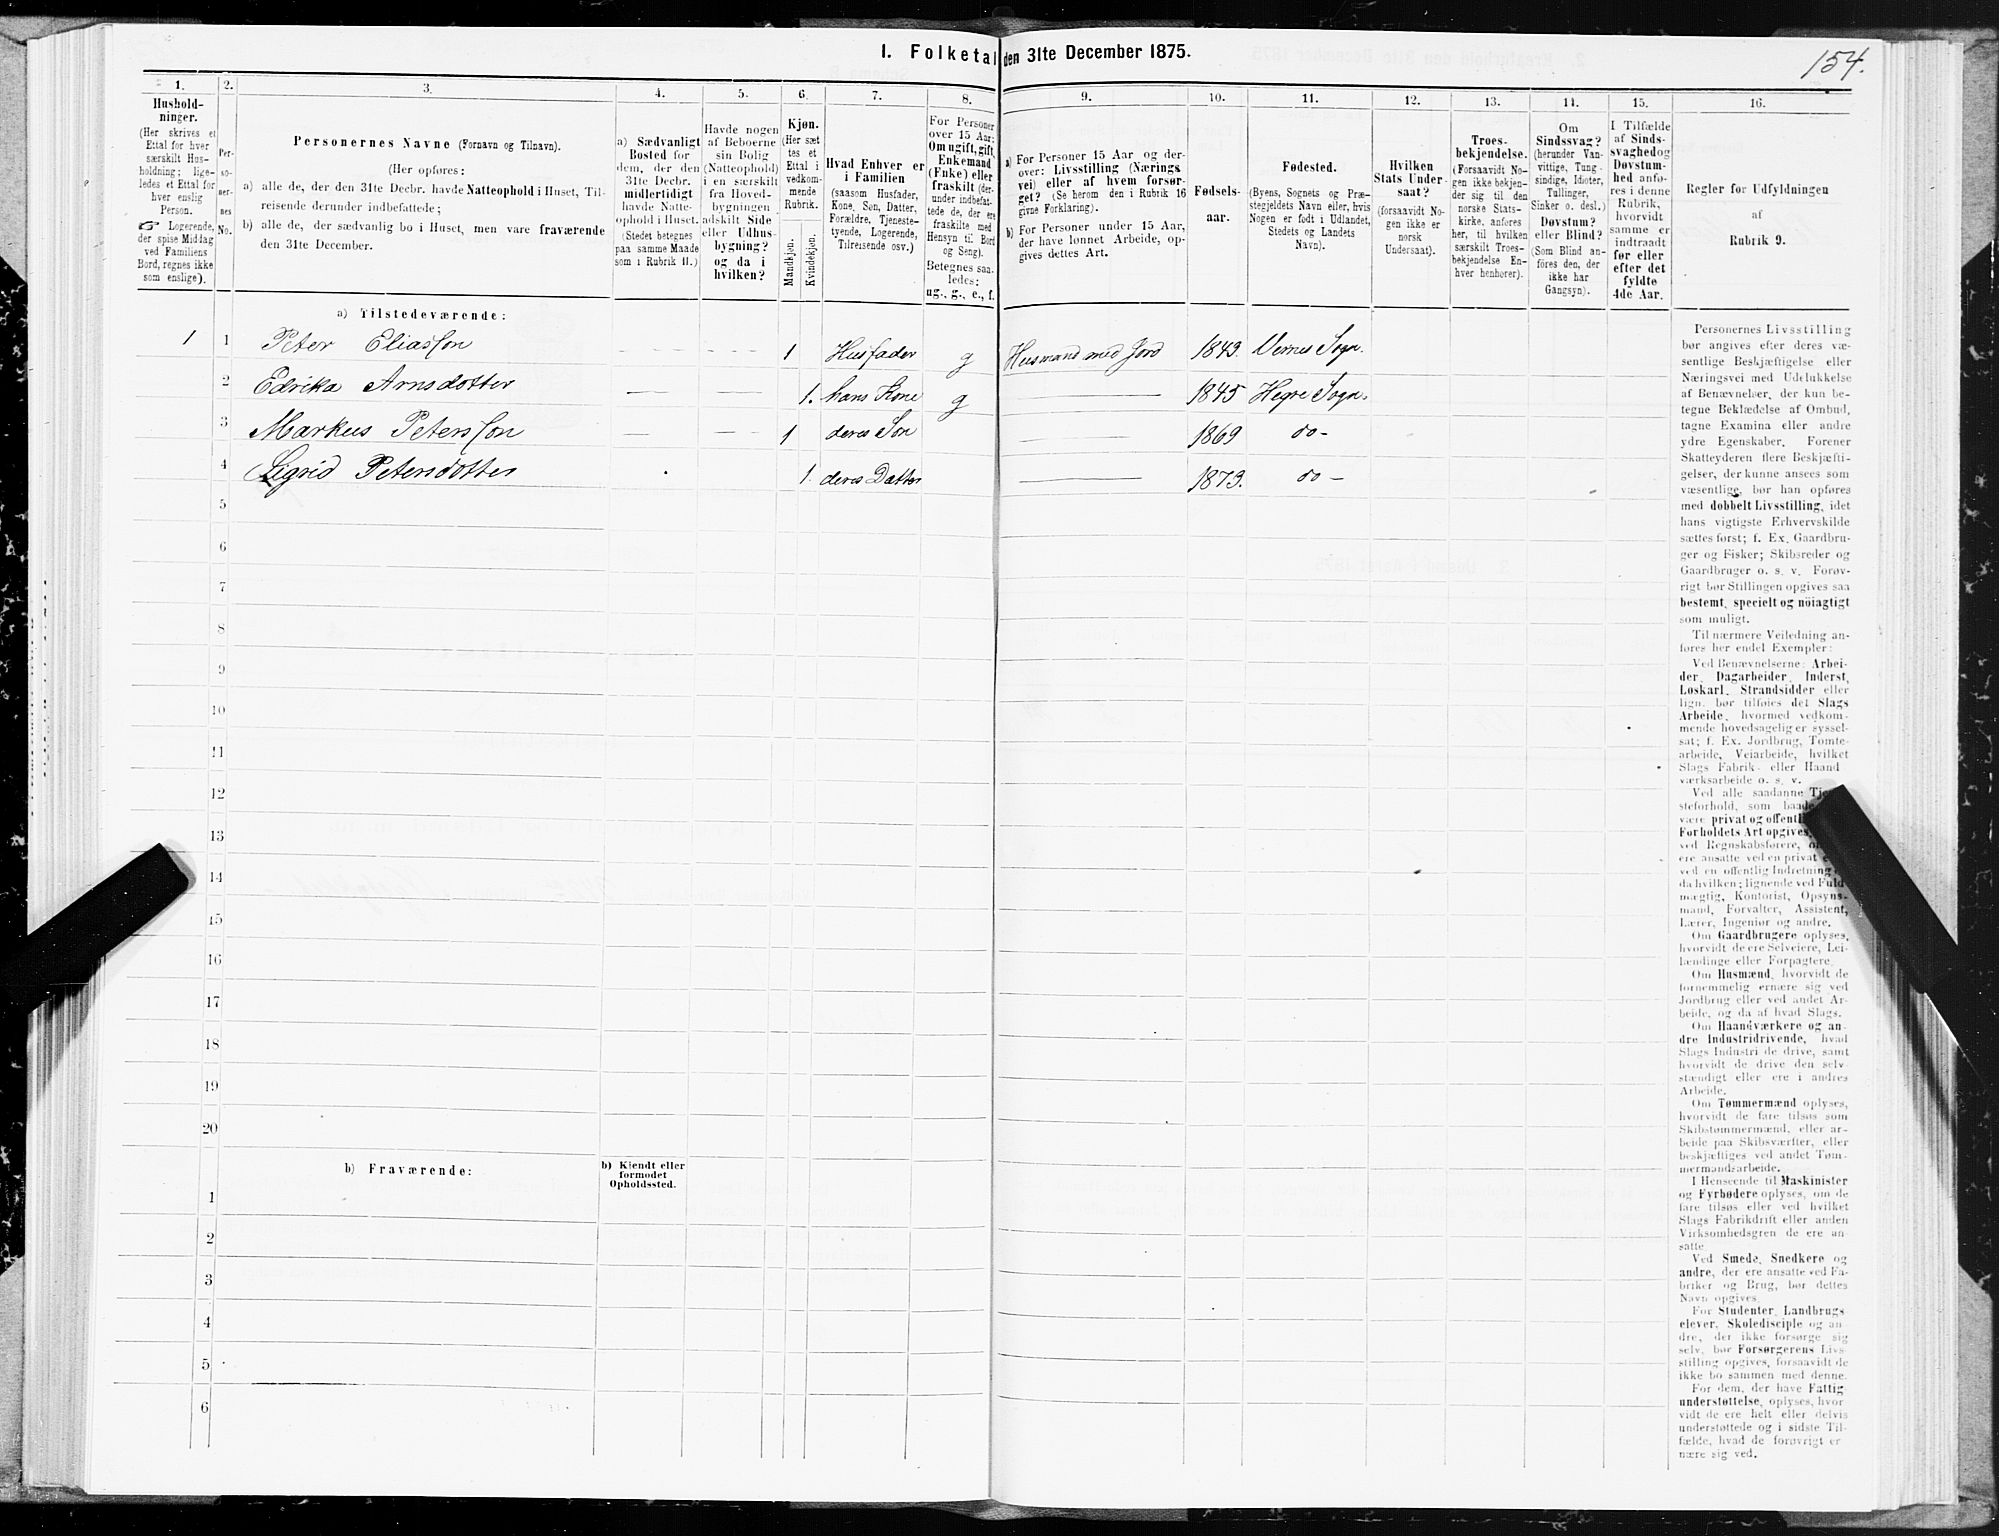 I. Folketal den 31te December 1875.
154.
1.
Hushold-
ninger.
(Her skrives et
Ettal for hver
særskilt Hus-
holdning; lige-
ledes et Ettal for
hver enslig
Person.
☞ Logerende,
der spise Middag
ved Familiens
Bord, regnes ikke
som enslige).
2.
Per-
so-
ner-
nes
No.
3.
Personernes Navne (Fornavn og Tilnavn).
(Her opføres:
a) alle de, der den 31te Decbr. havde Natteophold i Huset, Til-
reisende derunder indbefattede;
b) alle de, der sædvanlig bo i Huset, men vare fraværende
den 31te December.
4.
a) Sædvanligt
Bosted for
dem, der den
31te Decbr.
midlertidigt
havde Natte-
ophold i Huset.
(Stedet betegnes
paa samme Maade
som i Rubrik 11.)
5.
Havde nogen
af Beboerne
sin Bolig
(Natteophold)
i en særskilt
fra Hoved-
bygningen
adskilt Side
eller Udhus-
bygning?
og da i
hvilken?
6.
Kjøn.
(Her sæt
tes et
Ettal i
vedkom-
mende
Rubrik.
Mandkjøn.
Kvindekjøn.
7.
Hvad Enhver er
i Familien
(saasom Husfader,
Kone, Søn, Datter,
Forældre, Tjeneste-
tyende, Logerende,
Tilreisende osv.)
8.
For Personer
over 15 Aar:
Om ugift, gift,
Enkemand
(Enke) eller
fraskilt (der-
under indbefat-
tede de, der ere
fraskilte med
Hensyn til Bord
og Seng).
Betegnes saa-
ledes:
ug., g., e., f.
9.
a) For Personer 15 Aar og der-
over: Livsstilling (Nærings
vei) eller af hvem forsør-
get? (Se herom den i Rubrik 16
givne Forklaring).
b) For Personer under 15 Aar,
der have lønnet Arbeide, op-
gives dettes Art.
10.
Fødsels-
aar.
11.
Fødested.
(Byens, Sognets og Præ-
stegjeldets Navn eller, hvis
Nogen er født i Udlandet,
Stedets og Landets
Navn).
12.
Hvilken
Stats Under-
saat?
(forsaavidt No-
gen ikke er
norsk
Undersaat).
13.
Troes-
bekjendelse.
(Forsaavidt No-
gen ikke bekjen-
der sig til den
norske Stats-
kirke, anføres
her, til hvilken
særskilt Troes-
bekjendelse En-
hver henhører).
14.
Om
Sindssvag?
(herunder Van-
vittige, Tung-
sindige, Idioter,
Tullinger,
Sinker o. desl.)
Døvstum?
eller Blind?
(Som Blind an-
føres den, der
ikke har
Gangsyn).
15.
I Tilfælde
af Sinds-
svaghed og
Døvstum-
hed anfø-
res i denne
Rubrik,
hvorvidt
samme er
indtraadt
før eller
efter det
fyldte
4de Aar.
16.
Regler for Udfyldningen
af
Rubrik 9.
a) Tilstedeværende:
1 1 Peter Eliasson 1 Husfader g Husmand med Jord 1843. Vernes Sogn.
2 Edrika Arnsdotter 1. hans Kone g 1845 Hegre Sogn.
3 Markus Petersson 1 deres Søn 1869 do-
4 Sigrid Petersdotter 1. deres Datter 1873. do-
5
6
7
8
9
10
11
12
13
14
15
16
17
18
19
20
b) Fraværende:
b) Kjendt eller
formodet
Opholdssted.
1
2
3
4
5
6
Personernes Livsstilling
bør angives efter deres væ-
sentlige Beskjæftigelse eller
Næringsvei med Udelukkelse
af Benævnelser, der kun be-
tegne Beklædelse af Ombud,
tagne Examina eller andre
ydre Egenskaber. Forener
Skatteyderen flere Beskjæfti-
gelser, der kunne ansees som
væsentlige, bør han opføres
med dobbelt Livsstilling, idet
hans vigtigste Erhvervskilde
sættes først; f. Ex. Gaardbru-
ger og Fisker; Skibsreder og
Gaardbruger o. s. v. Forøv-
rigt bør Stillingen opgives saa
bestemt, specielt og nöiagtigt
som muligt.
Til nærmere Veiledning an-
føres her endel Exempler:
Ved Benævnelserne: Arbei-
der, Dagarbeider, Inderst,
Løskarl, Strandsidder eller
lign. bør tilføies det Slags
Arbeide, hvormed vedkom-
mende hovedsagelig er syssel-
sat; f. Ex. Jordbrug, Tomte-
arbeide, Veiarbeide, hvilket
Slags Fabrik- eller Haand
værksarbeide o. s. v.
Ved alle saadanne Tje
steforhold, som baade
være privat og offentli
Forholdets Art opgives,
ved Regnskabsførere, o
ere ansatte ved en privat e
ved en offentlig Indretning
da hvilken; lignende ved Fuld-
mægtig, Kontorist, Opsyns-
mand, Forvalter, Assistent,
Lærer, Ingeniør og andre.
Om Gaardbrugere oplyses,
hvorvidt de ere Selveiere, Lei-
lændinge eller Forpagtere.
Om Husmænd, hvorvidt de
fornemmelig ernære sig ved
Jordbrug eller ved andet Ar-
beide, og da af hvad Slags.
Om Haandværkere og an-
dre Industridrivende, hvad
Slags Industri de drive, samt
hvorvidt de drive den selv-
stændigt eller ere i andres
Arbeide.
Om Tømmermænd oplyses,
hvorvidt de fare tilsøs som
Skibstømmermænd, eller ar-
beide paa Skibsværfter, eller
beskjæftiges ved andet Tøm-
mermandsarbeide.
I Henseende til Maskinister
og Fyrbødere oplyses, om de
fare tilsøs eller ved hvilket
Slags Fabrikdrift eller anden
Virksomhedsgren de ere an-
satte.
Ved Smede, Snedkere og
andre, der ere ansatte ved Fa-
briker og Brug, bør dettes
Navn opgives.
For Studenter, Landbrugs
elever, Skoledisciple og an-
dre, der ikke forsørge sig
selv, bør Forsørgerens Livs-
stilling opgives, forsaavidt de
ikke bo sammen med denne.
For dem, der have Fattig
understøttelse, oplyses, hvor
vidt de ere helt eller delvis
understøttede og i sidste Til-
fælde, hvad de forøvrigt er
nære sig ved.